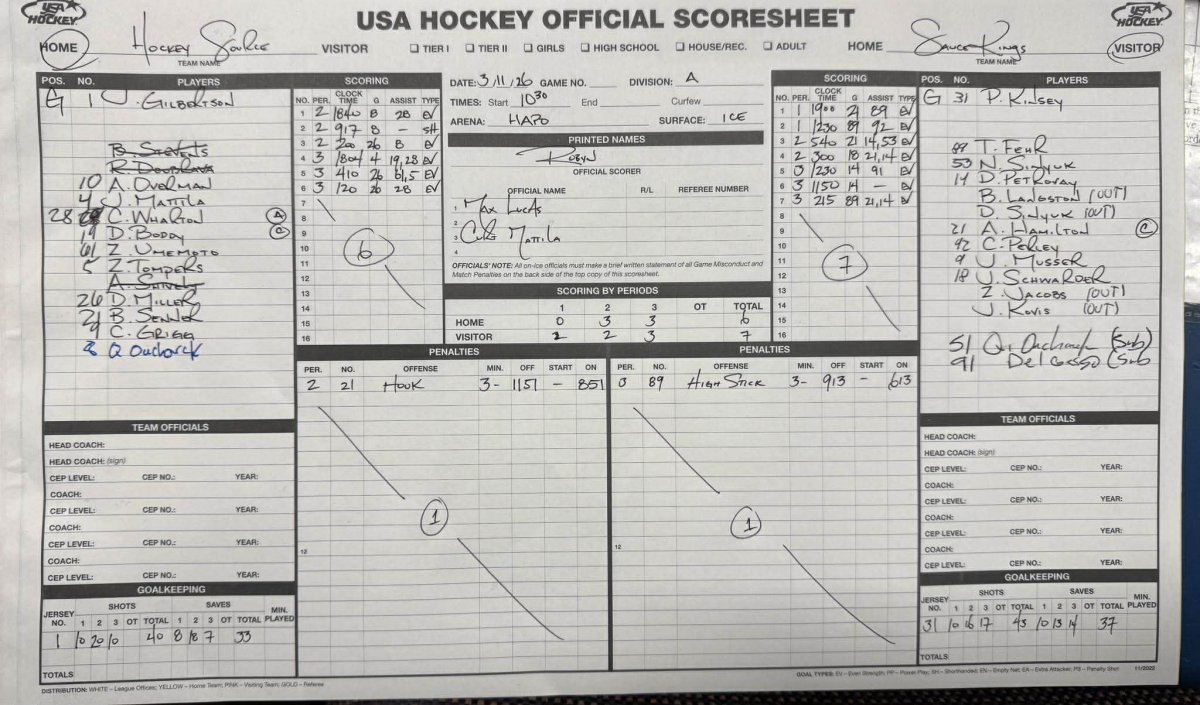 USA HOCKEY
USA HOCKEY OFFICIAL SCORESHEET
USA HOCKEY
HOME Hockey Source VISITOR ☐ TIER I ☐ TIER II ☐ GIRLS ☐ HIGH SCHOOL ☐ HOUSE/REC. ☐ ADULT HOME Sauce Kings VISITOR
TEAM NAME
TEAM NAME
POS. NO. PLAYERS
G 1 J. Gilbertson
B. Stevents
R. Doubrava
10 A. Overman
4 J. Mattila
28 C. Wharton A
19 D. Boddy C
61 Z. Umemoto
5 Z. Tompers
A. Shively
26 D. Miller
21 B. Senner
9 C. Grigg
8 Q Ouchark
SCORING
NO. PER. CLOCK TIME G ASSIST TYPE
1 2 1840 8 28 EV
2 2 917 8 - SH
3 2 200 26 8 EV
4 3 1804 4 19,28 EV
5 3 410 26 61,5 EV
6 3 120 26 28 EV
7
8
9
10
11
12
13
14
15
16
6
DATE: 3/11/26 GAME NO. DIVISION: A
TIMES: Start 1030 End Curfew
ARENA: HAPO SURFACE: ICE
PRINTED NAMES
Robyn
OFFICIAL SCORER
OFFICIAL NAME R/L REFEREE NUMBER
1 Max Lucas
2
3 Mattila
4
OFFICIALS' NOTE: All on-ice officials must make a brief written statement of all Game Misconduct and
Match Penalties on the back side of the top copy of this scoresheet.
SCORING BY PERIODS
1 2 3 OT TOTAL
HOME 0 3 3 6
VISITOR 2 2 3 7
SCORING
NO. PER. CLOCK TIME G ASSIST TYPE
1 1 1900 21 89 EV
2 1 1230 89 92 EV
3 2 540 21 14,53 EV
4 2 300 18 21,14 EV
5 3 1230 14 91 EV
6 3 1150 14 - EV
7 3 215 89 21,14 EV
8
9
10
11
12
13
14
15
16
7
POS. NO. PLAYERS
G 31 P. Kinsey
89 T. Fehr
53 N. Sinyuk
14 D. Petrovay
B. Langston (OUT)
D. Sinyuk (OUT)
21 A. Hamilton C
92 C. Perley
9 J. Musser
18 J. Schwarder
Z. Jacobs (OUT)
J. Kovis (OUT)
51 Q. Ouchark (Sub)
91 Del Gasso (Sub
PENALTIES
PER. NO. OFFENSE MIN. OFF START ON
2 21 Hook 3- 1151 - 851
12
1
PENALTIES
PER. NO. OFFENSE MIN. OFF START ON
3 89 High Stick 3- 913 - 613
12
1
TEAM OFFICIALS
HEAD COACH:
HEAD COACH: (sign)
CEP LEVEL: CEP NO.: YEAR:
COACH:
CEP LEVEL: CEP NO.: YEAR:
COACH:
CEP LEVEL: CEP NO.: YEAR:
COACH:
CEP LEVEL: CEP NO.: YEAR:
GOALKEEPING
JERSEY NO. SHOTS 1 2 3 OT TOTAL SAVES 1 2 3 OT TOTAL MIN. PLAYED
1 10 20 10 40 8 18 7 33
TOTALS
TEAM OFFICIALS
HEAD COACH:
HEAD COACH: (sign)
CEP LEVEL: CEP NO.: YEAR:
COACH:
CEP LEVEL: CEP NO.: YEAR:
COACH:
CEP LEVEL: CEP NO.: YEAR:
COACH:
CEP LEVEL: CEP NO.: YEAR:
GOALKEEPING
JERSEY NO. SHOTS 1 2 3 OT TOTAL SAVES 1 2 3 OT TOTAL MIN. PLAYED
31 10 16 17 43 10 13 14 37
TOTALS
DISTRIBUTION: WHITE – League Offices; YELLOW – Home Team; PINK – Visiting Team; GOLD – Referee
GOAL TYPES: EV – Even Strength; PP – Power Play; SH – Shorthanded; EN – Empty Net; EA – Extra Attacker; PS – Penalty Shot 11/2022